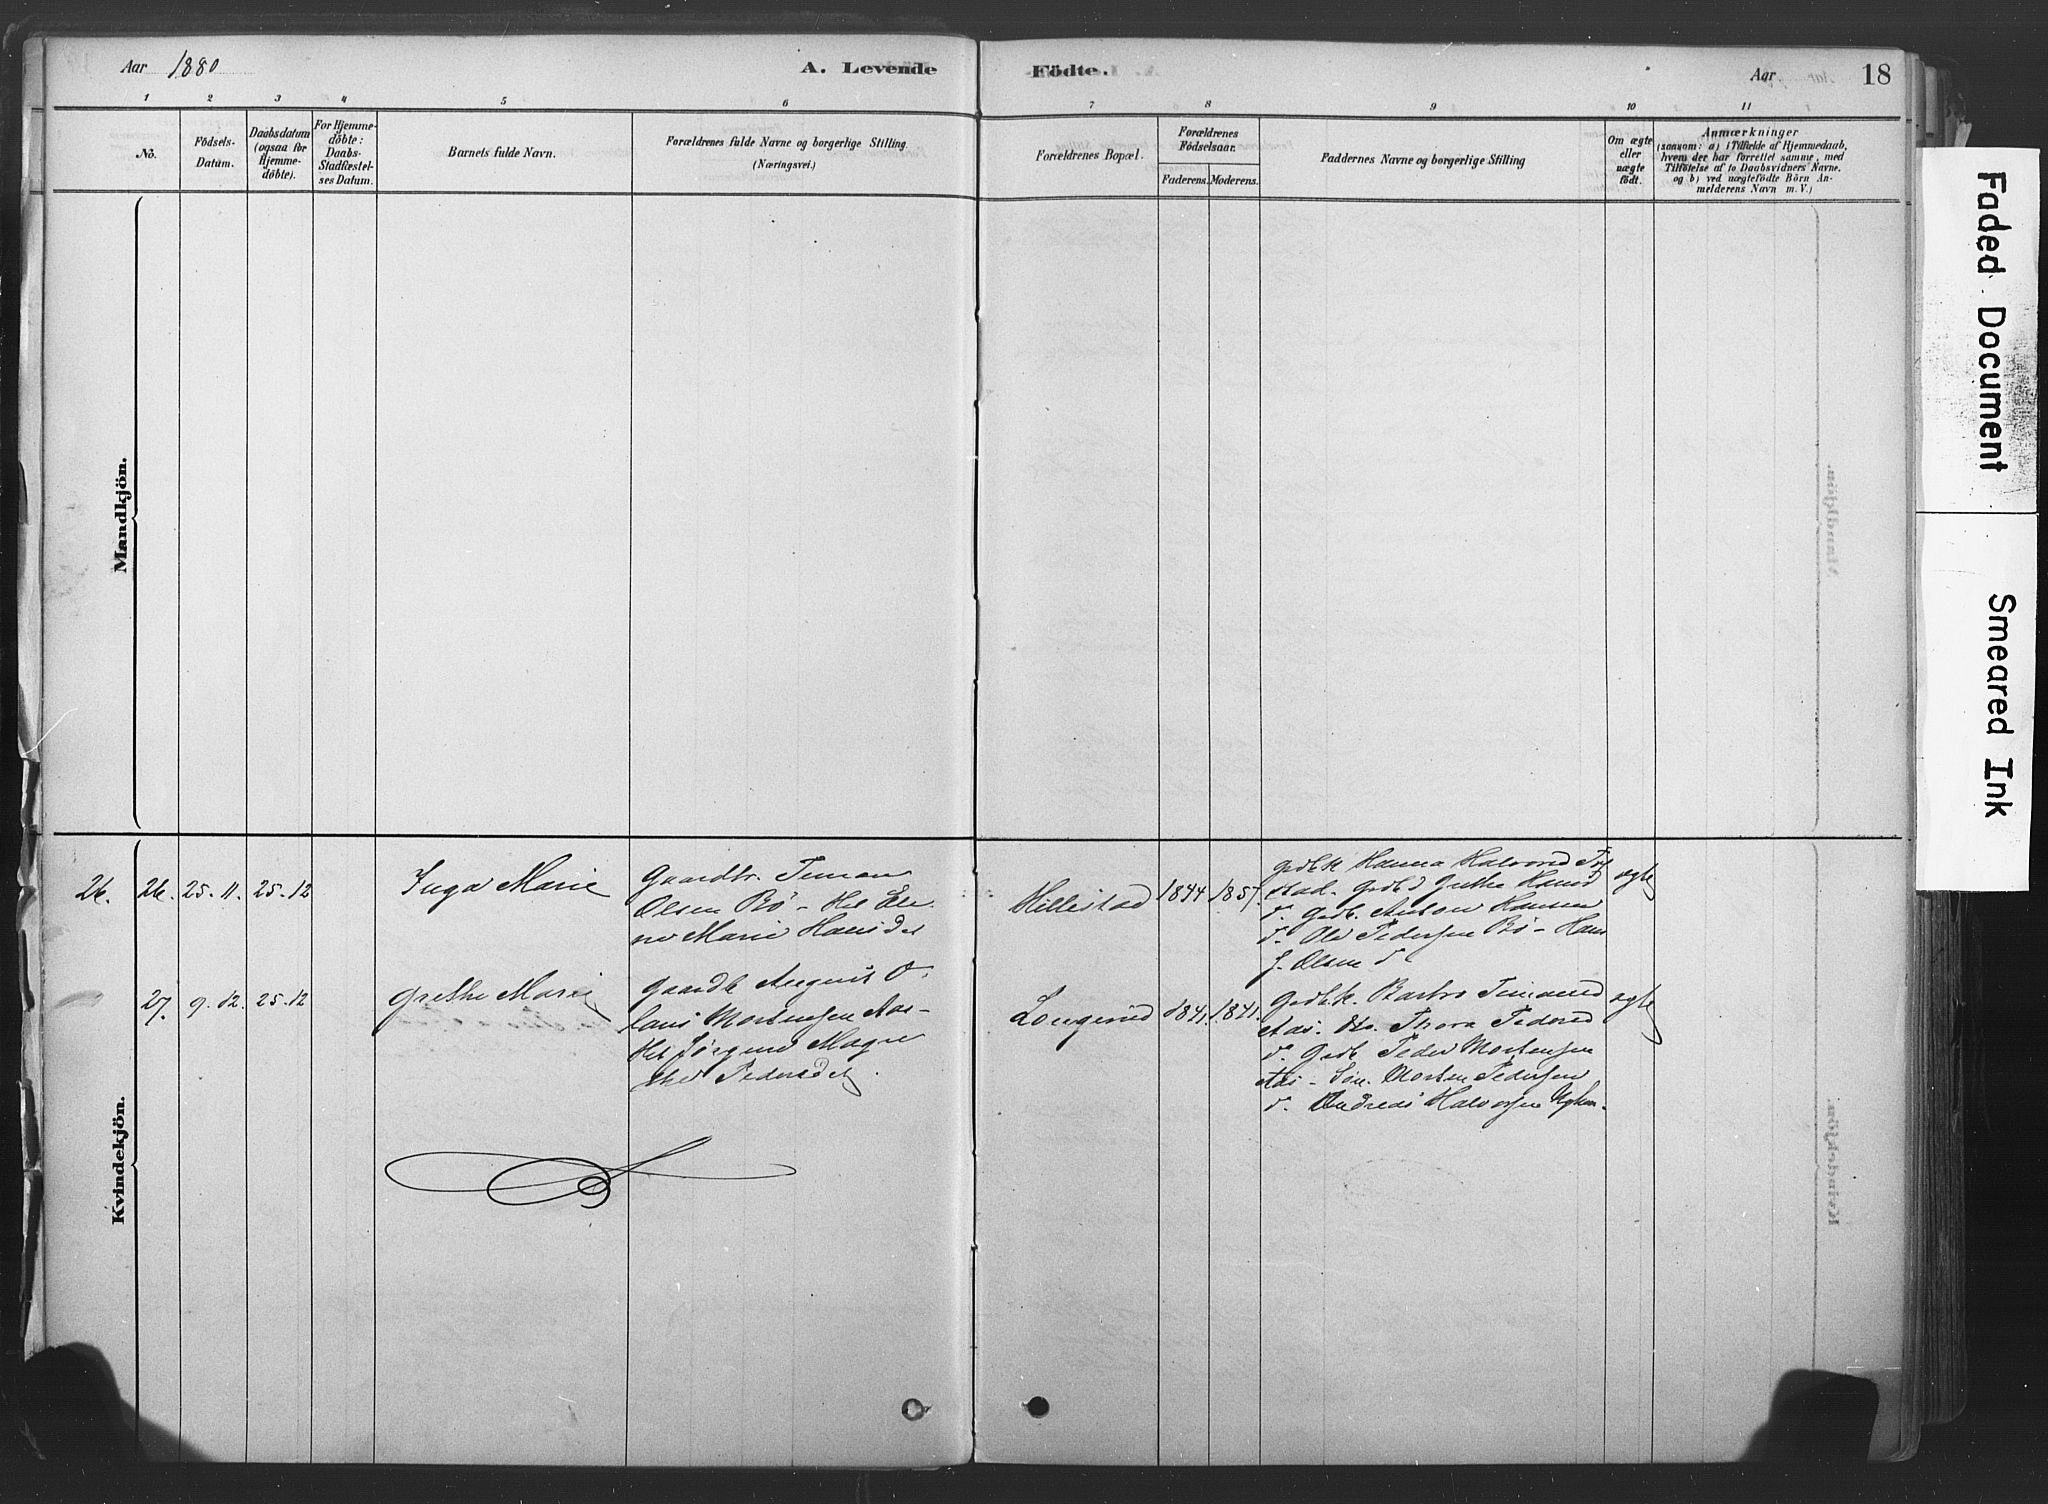 Aar 1880
A. Levende
Födte.
Aar
18
1
2
3
4
5
6
7
8
9
10
11
No.
Födsels-
Datum.
Daabsdatum
(ogsaa för
Hjemme-
döbte).
For Hjemme-
döbte:
Daabs-
Stadfæstel-
ses Datum.
Barnets fulde Navn.
Forældrenes fulde Navne og borgerlige Stilling.
(Næringsvei.)
Forældrenes Bopæl.
Forældrenes
Födselsaar.
Faderens.
Moderens.
Faddernes Navne og borgerlige Stilling
Om ægte
eller
uægte
födt.
Anmærkninger
(saasom: a) i Tilfælde af Hjemmedaab,
hvem der har forrettet samme, med
Tilföielse af to Daabsvidners Navne.
og b) ved uægtefödte Börn An-
melderens Navn m. V.)
Mandkjön.
Kvindekjön.
26.
26.
25.11.
25.12
Inga Marie
Gaardbr.
Olsen Bö - Hst
Marie Hansdet
Hillestad
1844
1857.
Grethe Hans
d. Gdb. Anton Hansen
d. Ole Pedersen Bö - Hans
J. Olsen d.
ægte
27.
9.12.
25.12
Grethe Marie
Gaardb August O-
laus Mortensen Aas-
Hst Jörgine Magre
thea Pedersdet.
Lougerud
1841.
1841.
Aas. Do. Thora Peders
d. Gdb Peder Mortensen
Aas - Sön. Morten Pedersen
d. Andreas Halvorsen
ægte
Faded Document
Smeared Ink